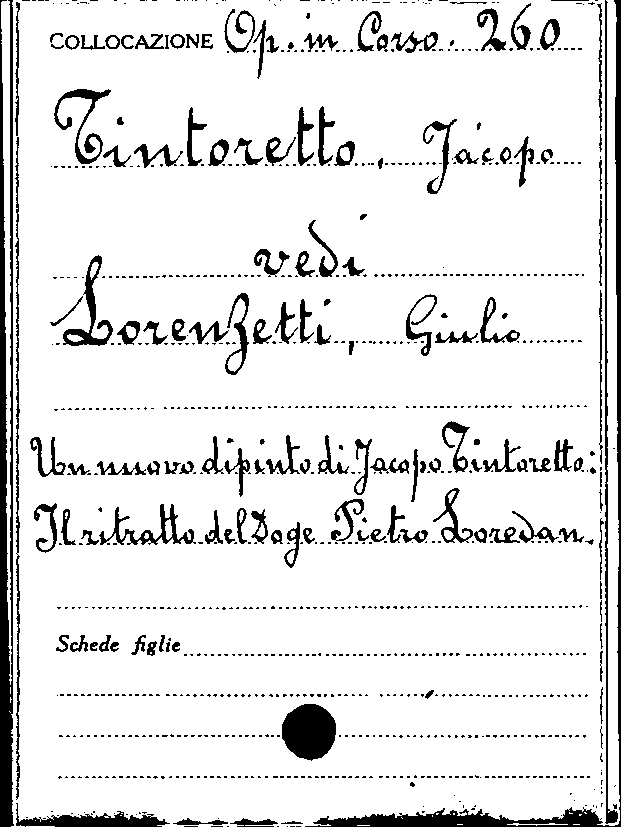 COLLOCAZIONE Op. in Corso. 260
Tintoretto, Jacopo
vedi
Lorenzetti, Giulio
Un nuovo dipinto di Jacopo Tintoretto:
Il ritratto del Doge Pietro Loredan.
Schede figlie